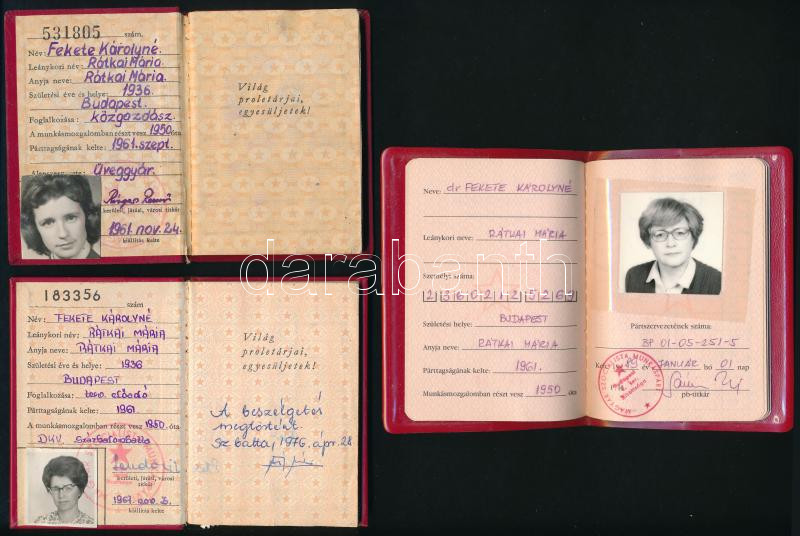 531805 szám.
Név: Fekete Károlyné.
Leánykori név: Rátkai Mária.
Anyja neve: Rátkai Mária.
Születési éve és helye: 1936.
Budapest.
Foglalkozása: közgazdász.
A munkásmozgalomban részt vesz 1950 óta
Párttagságának kelte: 1961. szept.
Üveggyár.
kerületi, járási, városi titkár
1961. nov. 24.
kiállítás kelte
Világ
proletárjai,
egyesüljetek!
183356
szám
Név: FEKETE KÁROLYNÉ
Leánykori név: RÁTKAI MÁRIA
Anyja neve: RÁTKAI MÁRIA
Születési éve és helye: 1936
BUDAPEST
Foglalkozása: előadó
Párttagságának kelte: 1961
A munkásmozgalomban részt vesz 1950. óta
DKV. Százhalombatta
kerületi, járási, városi
titkár
1967. nov.
kiállítás kelte
Világ
proletárjai,
egyesüljetek!
A beszélgetés
megtörtént.
Sz.batta, 1976. ápr. 28.
Neve: dr FEKETE KÁROLYNÉ
Leánykori neve: RÁTKAI MÁRIA
Személyi száma:
Születési helye: BUDAPEST
Anyja neve: RÁTKAI MÁRIA
Párttagságának kelte: 1961.
Munkásmozgalomban részt vesz 1950 óta
Pártszervezetének száma:
BP 01-05-251-5
JANUÁR hó 01 nap
pb-titkár
darabanth